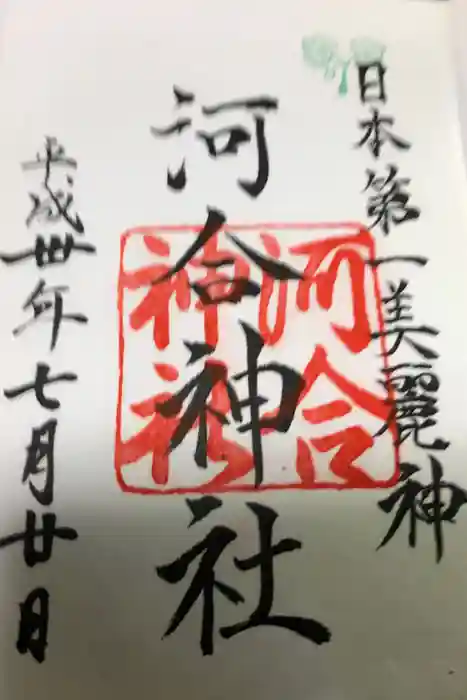 日本第一美麗神
河合神社
河合
神社
平成卅年七月廿日